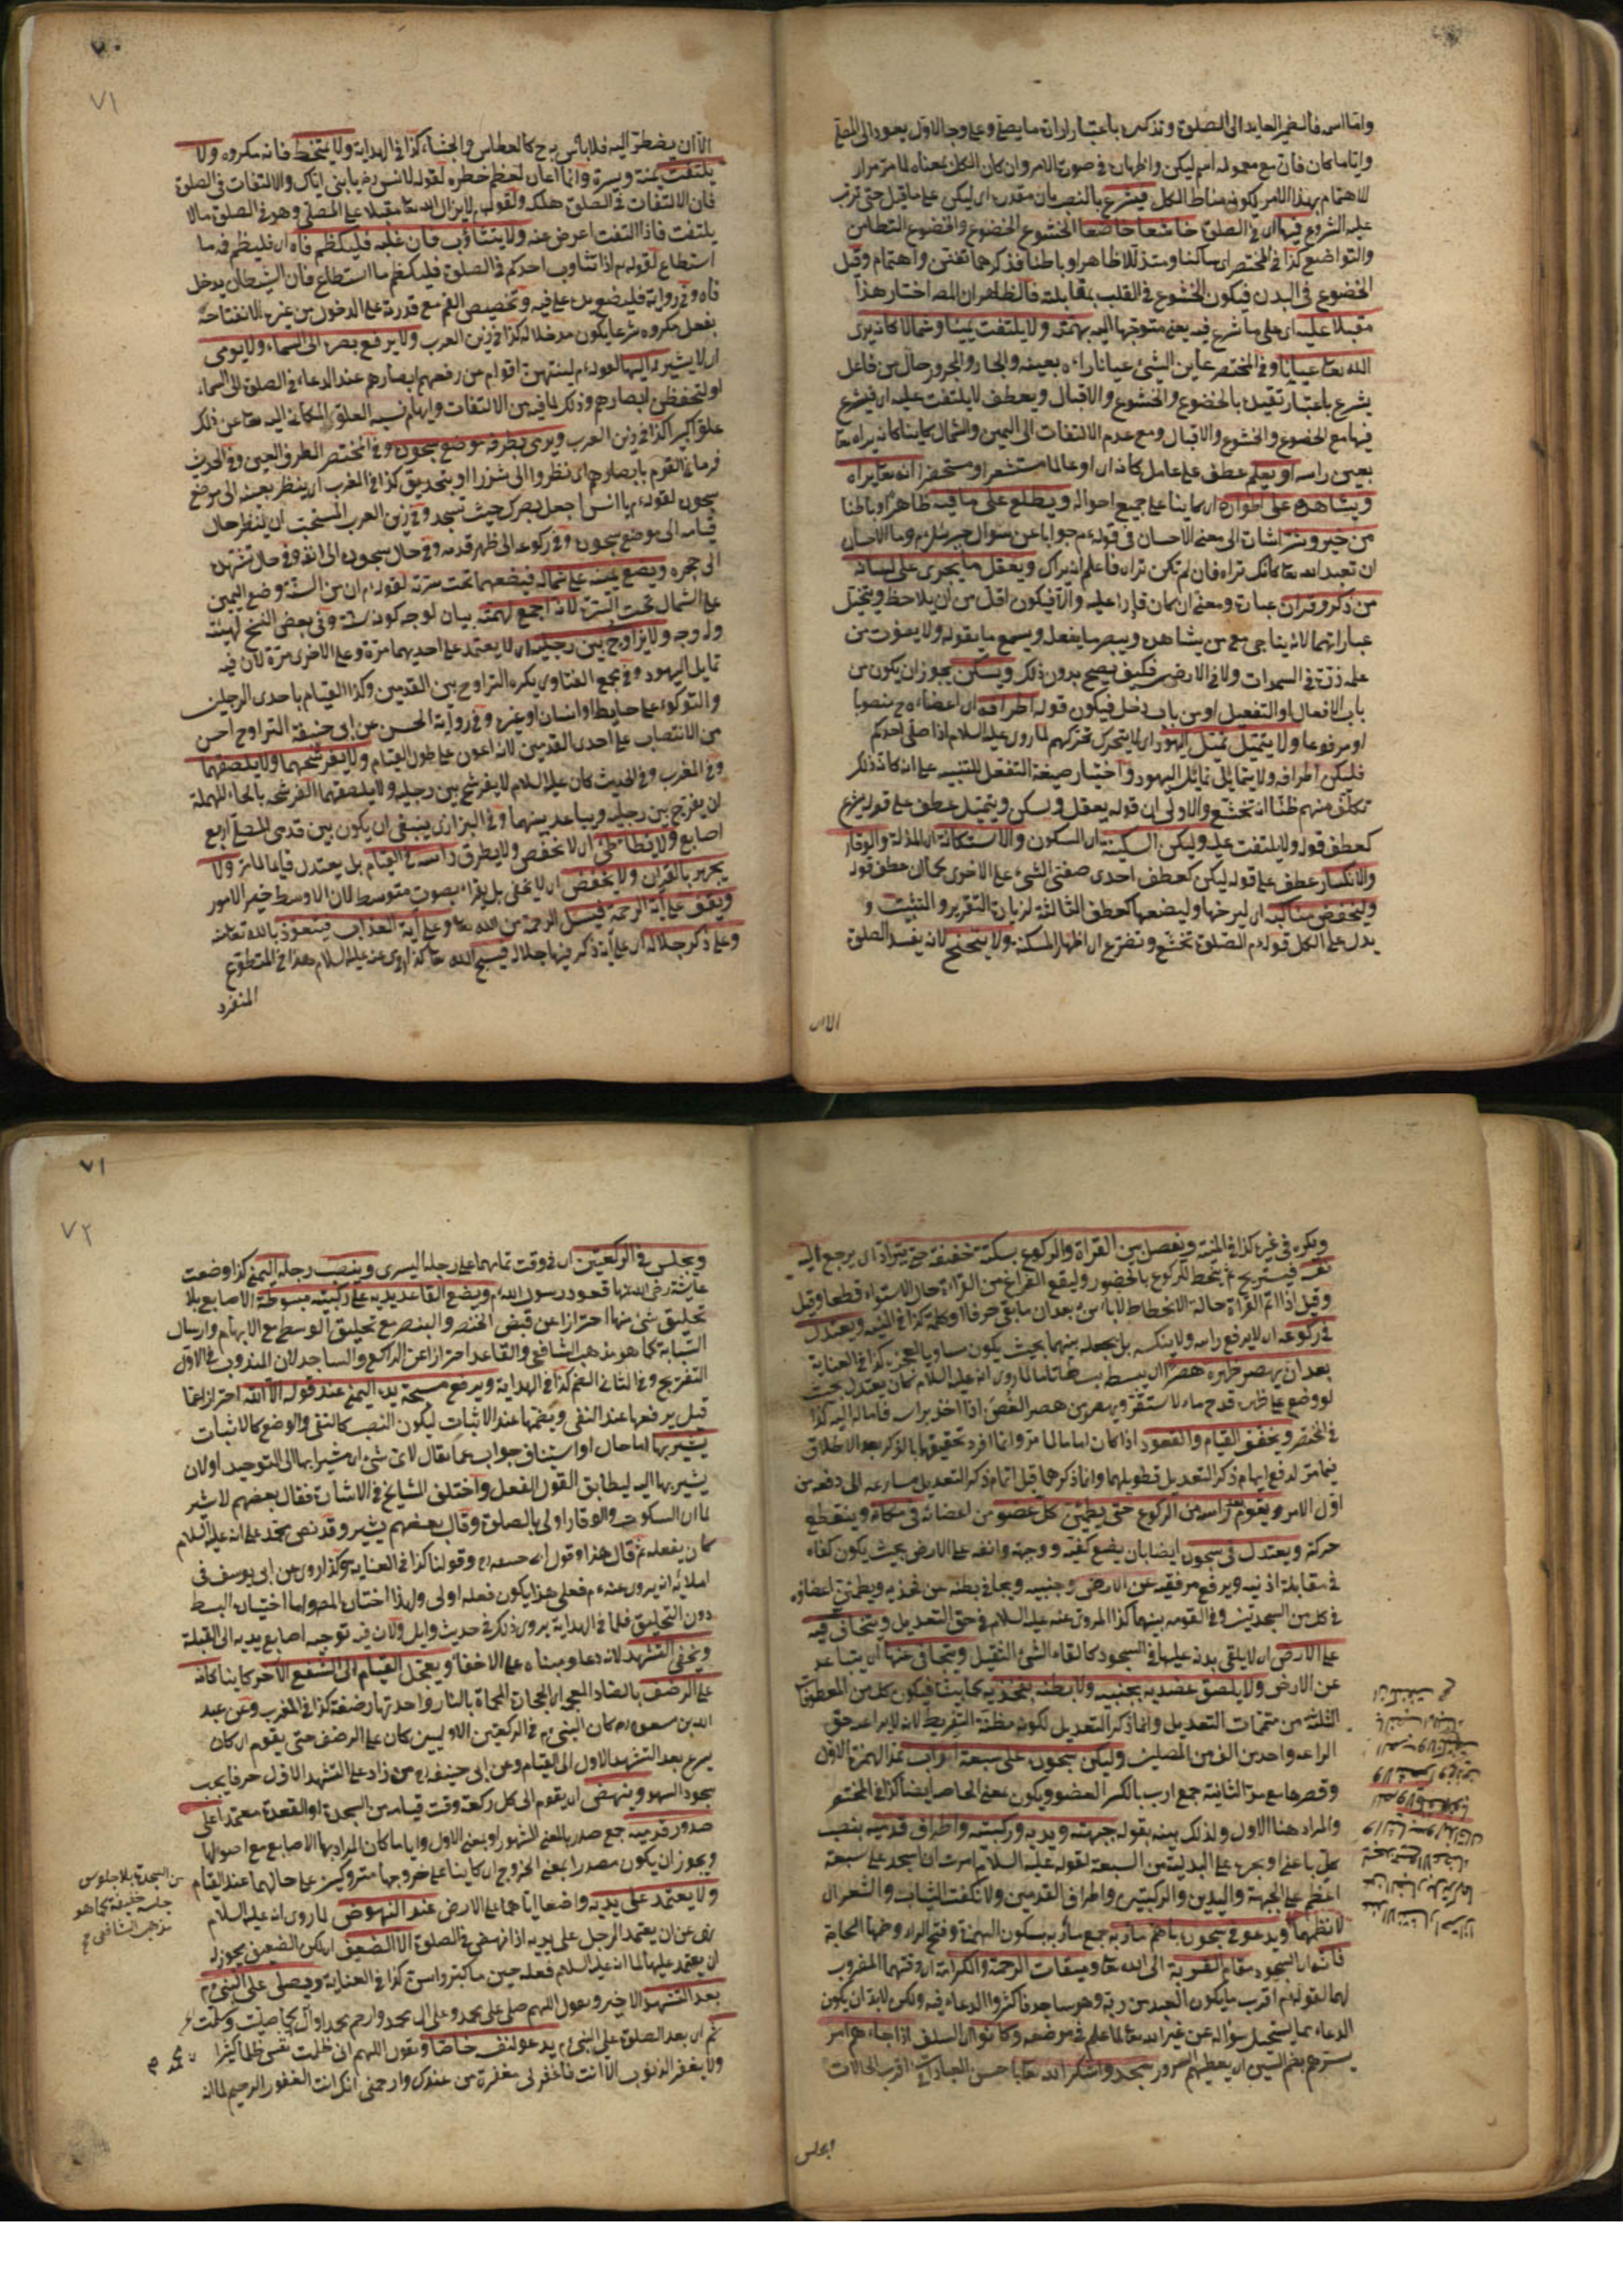 واما اسمه فالضمير العايد الى الصلوة وتذكيره باعتبار ارادة ما يصلي وعلى وجه الاول يعود الى المصلي
واياما كان فان مع معموله اسم ليكن واظهاره في صورة الامر وان كان الكل بمعناه لما مر مرار
للاهتمام بهذا الامر لكونه مناط الكل فيشرع بالنصب بان مقدرة اي ليكن على ما قيل حتى ترتب
عليه الشروع فيها اي في الصلوة خاشعا خاضعا الخشوع الخضوع والخضوع التطامن
والتواضع كذا في المختصر اي ساكنا ومتذللا ظاهرا وباطنا فذكرهما تفنن واهتمام وقيل
الخضوع في البدن فيكون الخشوع في القلب بمقابلته فالظاهر ان المصر اختار هذا
مقبلا عليه اي على ما شرع فيه يعني متوجها اليه بهمته ولا يلتفت يمينا وشمالا كانه يرى
الله تعا عيانا وفي المختصر عاين الشئ عيانا راه بعينه والجار والمجرور حال من فاعل
يشرع باعتبار تقيده بالخضوع والخشوع والاقبال ويعطف لا يلتفت عليه اي فيشرع
فيها مع الخضوع والخشوع والاقبال ومع عدم الالتفات الى اليمين والشمال كاينا كانه يراه تعا
بعين راسه او يعلم عطف على عامل كانه اي او عالما مستشعرا ومستحضرا انه تعا يراه
ويشاهده على اطواره اي كاينا على جميع احواله ويطلع على ما فيه ظاهرا وباطنا
من خير وشر اشارة الى معنى الاحسان في قوله م جوابا عن سوال جبرئيل م وما الاحسان
ان تعبد الله تعا كانك تراه فان لم تكن تراه فاعلم انه يراك ويعقل ما يجرى على لسانه
من ذكر وقران عبارة ومعنى ان كان قادرا عليه والا فيكون اقل من ان يلاحظ ويتخيل
عباراتهما لانه يناجي مع من يشاهده ويبصر ما يفعله ويسمع ما يقوله ولا يعزب من
علمه ذرة في السموات ولا في الارض فكيف يصح بدون ذلك ويسكن يجوز ان يكون من
باب الافعال او التفعيل او من باب دخل فيكون قوله اطرافه اي اعضاءه ح منصوبا
او مرفوعا ولا يتميل تميل اليهود اي لا يتحرك تحركهم لما روى عليه السلام اذا صلى احدكم
فليسكن اطرافه ولا يتمايل تمايل اليهود واختيار صيغة التفعل للتنبيه على انه كان ذلك
تكلفا منهم ظنا انه تخشع والاولى ان قوله يعقل ويسكن ويتميل عطف على قوله يشرع
كعطف قوله ولا يلتفت عليه وليكن السكينة اي السكون والاستكانة اي المذلة والوقار
والانكسار عطف على قوله ليكن كعطف احدى صفتي الشئ على الاخرى كما ان عطف قوله
وليخفض مناكبه اي ليرخها وليضعها كعطف الثالثة لزيادة التقرير والتثبيت و
يدل على الكل قوله م الصلوة تخشع وتضرع اي اظهار المسكنة ولا يتنحنح لانه يفسد الصلوة
الا ان
٧٠
٧١
الا ان يضطر اليه فلا باس به ح كالعطاس والجشاء كذا في الهداية ولا يتمخط فانه مكروه ولا
يلتفت يمنة ويسرة وانما اعاده لعظم خطره لقوله لانس رض يا بني اياك والالتفات في الصلوة
فان الالتفات في الصلوة هلكة ولقوله م لا يزال الله تعا مقبلا على المصلي وهو في الصلوة ما لا
يلتفت فاذا التفت اعرض عنه ولا يتثاوب فان غلبه فليكظم فاه اي فليضم فمه ما
استطاع لقوله م اذا تثاوب احدكم في الصلوة فليكظم ما استطاع فان الشيطان يدخل
فاه وفي رواية فليضع يده على فيه وتخصيص الفم مع قدرته على الدخول من غيره لان انفتاحه
بفعل مكروه شرعا يكون مدخلا له كذا في زين العرب ولا يرفع بصره الى السماء ولا يومى
اي لا يشير به اليها لقوله م لينتهين اقوام من رفعهم ابصارهم عند الدعاء في الصلوة الى السماء
او لتخطفن ابصارهم وذلك لما فيه من الالتفات وايهام نسبة العلو المكاني اليه تعا عن ذلك
علوا كبيرا كذا في زين العرب ويرمى بطرفه موضع سجوده وفي المختصر الطرف العين وفي الحديث
فرماني القوم بابصارهم اي نظروا الى شزرا او بتحديق كذا في المغرب اي ينظر بعينه الى موضع
سجوده لقوله م يا انس اجعل بصرك حيث تسجد وفي زين العرب المستحب ان ينظر حال
قيامه الى موضع سجوده وفي ركوعه الى ظهر قدمه وفي حال سجوده الى انفه وفي حال تشهده
الى حجره ويضع يمينه على شماله فيضعهما تحت سرته لقوله م ان من السنة وضع اليمين
على الشمال تحت السرة لانه اجمع لهمته بيان لوجه كونه سنة وفي بعض النسخ لهيئته
وله وجه ولا يراوح بين رجليه اي لا يعتمد على احديهما مرة وعلى الاخرى مرة لان فيه
تمايل اليهود وفي مجمع الفتاوى يكره التراوح بين القدمين وكذا القيام باحدى الرجلين
والتوكؤ على حايط او انسان او غيره وفي رواية الحسن عن ابي حنيفة التراوح احسن
من الانتصاب على احدى القدمين لانه اعون على طول القيام ولا يفرشحهما ولا يلصقهما
وفي المغرب وفي الحديث كان عليه السلام لا يفرشح بين رجليه ولا يلصقهما الفرشحة بالحاء المهملة
ان يفرج بين رجليه ويباعد بينهما وفي البزازي ينبغي ان يكون بين قدمي المصلي اربع
اصابع ولا يتطاطئ اي لا يخفض ولا يطرق راسه في القيام بل يعتدل قايما لما مر ولا
يجهر بالقران ولا يخفض اي لا يخفي بل يقراء بصوت متوسط لان الاوسط خير الامور
ويقف على آية الرحمة فيسئل الرحمة من الله تعا وعلى آية العذاب فيتعوذ بالله تعا منه
وعلى ذكر جلاله اي على آية ذكر فيها جلاله فيسبح الله تعا كذا روى عنه عليه السلام هذا في المتطوع
المنفرد
ويكره في غيره كذا في المنية ويفصل بين القراة والركوع بسكتة خفيفة حتى يتراد اي يرجع اليه
نفسه فيستريح ثم ينحط للركوع بالحضور وليقع الفراغ من القراءة حال الاستواء قطعا وقيل
وقيل اذا اتم القراة حالة الانحطاط لا باس به بعد ان ما بقي حرفا او كلمة كذا في المنية ويعتدل
في ركوعه اي لا يرفع راسه ولا ينكسه بل يجعله بينهما بحيث يكون مساويا للعجز كذا في العناية
بعد ان يهصر ظهره هصرا اي يبسطه بسطا تاما لما روى انه عليه السلام كان يعتدل بحيث
لو وضع على ظهره قدح ماء لاستقر ويهصر من هصر الغصن اذا اخذ براسه فاماله اليه كذا
في المختصر ويخفف القيام والقعود اذا كان اماما لما مر وانما افرد تحقيقهما بالذكر بعد الاطلاق
فيما مر لدفع ايهام ذكر التعديل تطويلهما وانما ذكرهما قبل اتمام ذكر التعديل مسارعة الى دفعه من
اول الامر ويقوم بعد راسه من الركوع حتى يطمئن كل عضو من اعضائه في مكانه وينقطع
حركته ويعتدل في سجوده ايضا بان يضع كفيه ووجهه وانفه على الارض بحيث يكون كفاه
في مقابلة اذنيه ويرفع مرفقيه عن الارض وجنبيه ويجافي بطنه عن فخذيه ويطمئن اعضاؤه
في كل من السجدتين وفي القومة بينهما كذا المروى عنه عليه السلام في حق التعديل ويتخاف فيه
على الارض اي لا يلقى بدنه عليها في السجود كالقاء الشئ الثقيل ويتجافى عنها اي يتباعد
عن الارض ولا يلصق عضديه بجنبيه ولا بطنه بفخذيه كما بينا فيكون كل من المعطوفات
الثلثة من متممات التعديل وانما ذكر التعديل لكونه مظنة التفريط لانه لا يراعه حق
الراعة واحد من الف من المصلين وليكن سجوده على سبعة آراب بمد الهمزة الاولى
وقصرها مع مد الثانية جمع ارب بالكسر العضو ويكون بمعنى الحاجة ايضا كذا في المختصر
والمراد هنا الاول ولذلك بينه بقوله جبهته ويديه وركبتيه واطراف قدميه بنصب
كل باعني او بجره على البدلية من السبعة لقوله عليه السلام امرت ان اسجد على سبعة
اعظم على الجبهة واليدين والركبتين واطراف القدمين ولا نكفت الثياب والشعر اي
لا نضمها ويدعو في سجوده باهم مآربه جمع مأربه بسكون الهمزة وفتح الراء وضمها الحاجة
فانه اي السجود مقام القربة الى الله تعا وميقات الرحمة والكرامة اي وقتهما المضروب
لهما لقوله م اقرب ما يكون العبد من ربه وهو ساجد فاكثروا الدعاء فيه ولكن لا بد ان يكون
الدعاء بما يستحيل سؤاله عن غير الله تعا لما علم في موضعه وكانوا اي السلف اذا جاءهم امر
يسرهم بضم السين اي يعطيهم السرور سجدوا شكرا لله تعا باحسن العبادات اقرب الحالات
ويجلس
٧١
٧٢
ويجلس في الركعتين اي في وقت تمامهما على رجله اليسرى وينصب رجله اليمنى كذا وصفت
عايشة رضي الله عنها قعود رسول الله م ويضع القاعد يديه على ركبتيه مبسوطة الاصابع بلا
تحليق شئ منها احترازا عن قبض الخنصر والبنصر مع تحليق الوسطى مع الابهام وارسال
السبابة كما هو مذهب الشافعي والقاعد احترازا عن الراكع والساجد لان المندوب في الاول
التفريج وفي الثاني الضم كذا في الهداية ويرفع مسبحة يده اليمنى عند قوله الا الله احترازا عما
قيل يرفعها عند النفي ويضمها عند الاثبات ليكون النصب كالنفي والوضع كالاثبات
يشير بها اما حال او استيناف جواب عما يقال لاى شئ اي مشيرا بها الى التوحيد او لان
يشير بها اليه ليطابق القول الفعل واختلف المشايخ في الاشارة فقال بعضهم لا يشير
لما ان السكون والوقار اولى بالصلوة وقال بعضهم يشير وقد نص محمد على انه عليه السلام
كان يفعله ثم قال هذا وقول ابي حنيفة رح وقولنا كذا في العناية وكذا روى عن ابي يوسف في
املائه انه يروى عنه م فعلى هذا يكون فعله اولى ولهذا اختاره المصر واما اختياره البسط
دون التحليق فلما في الهداية يروى ذلك في حديث وايل ولان فيه توجيه اصابع يديه الى القبلة
ويخفي التشهد لانه دعاء ومبناه على الاخفاء ويعجل القيام الى الشفع الاخر كاينا كانه
على الرضف بالضاد المعجمة الحجارة المحماة بالنار واحدتها رضفة كذا في المغرب وعن عبد
الله بن مسعود رض كان النبي م في الركعتين الاوليين كان على الرضف حتى يقوم اي كان
يسرع بعد التشهد الاول الى القيام وعن ابي حنيفة رح من زاد على التشهد الاول حرفا يجب
سجود السهو وينهض اي يقوم الى كل ركعة وقت قيامه من السجدة او القعدة معتمدا على
صدور قدميه جمع صدر بالمعنى المشهور او بمعنى الاول واياما كان المراد بها الاصابع مع اصولها
ويجوز ان يكون مصدرا بمعنى الخروج اي كاينا على خروجهما متروكين على حالهما عند القيام
ولا يعتمد على يديه واضعا اياهما على الارض عند النهوض لما روى انه عليه السلام
نهى عن ان يعتمد الرجل على يديه اذا نهض في الصلوة الا الضعيف اي لكن الضعيف يجوز له
ان يعتمد عليهما لما انه عليه السلام فعله حين ما كبر واسن كذا في العناية ويصلى على النبي م
بعد التشهد الاخير ويقول اللهم صل على محمد وعلى ال محمد وارحم محمدا وال محمد كما صليت وسلمت
ثم اي بعد الصلوة على النبي م يدعو لنفسه خاصا ويقول اللهم اني ظلمت نفسي ظلما كثيرا
ولا يغفر الذنوب الا انت فاغفر لي مغفرة من عندك وارحمني انك انت الغفور الرحيم لما انه
من السجدة بلا جلوس
جلسة خفيفة كما هو
مذهب الشافعي